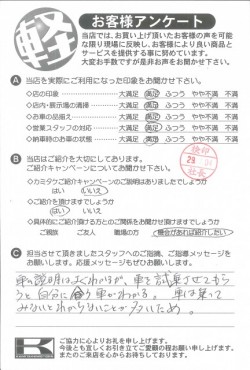 軽
お客様アンケート
当店では、お買い上げ頂いたお客様の声を可能
な限り現場に反映し、お客様により良い商品と
サービスを提供する事に努めています。
大変お手数ですが是非お声をお聞かせ下さい。
A 当店を実際にご利用になった印象をお聞かせ下さい。
◇店の印象 大満足 満足 ふつう やや不満 不満
◇店内・展示場の清掃 大満足 満足 ふつう やや不満 不満
◇お車の品揃え 大満足 満足 ふつう やや不満 不満
◇営業スタッフの対応 大満足 満足 ふつう やや不満 不満
◇納車時のお車の状態 大満足 満足 ふつう やや不満 不満
B 当店はご紹介を大切にしております。
ご紹介キャンペーンについてお聞かせ下さい。
◇カミタケご紹介キャンペーンのご説明はありましたでしょうか
はい いいえ
◇ご紹介を頂けますでしょうか
はい いいえ
◇具体的にご紹介頂ける方とのご関係をお聞かせ頂けますでしょうか
ご親族 ご友人 職場の方 機会があれば紹介したい
社長
C 担当させて頂きましたスタッフへのご指摘、ご指導メッセージを
お願いします。応援メッセージもぜひお願いします。
車の説明はよくわかるが、車を試乗させてもら
うと自分に合う車がわかる。車は乗って
みないとわからないことが多いため。
K
ご協力に心よりお礼を申し上げます。
今後とも宜しくお引き立てご愛顧の程お願い申し上げます。
またのご来店を心からお待ちしております。